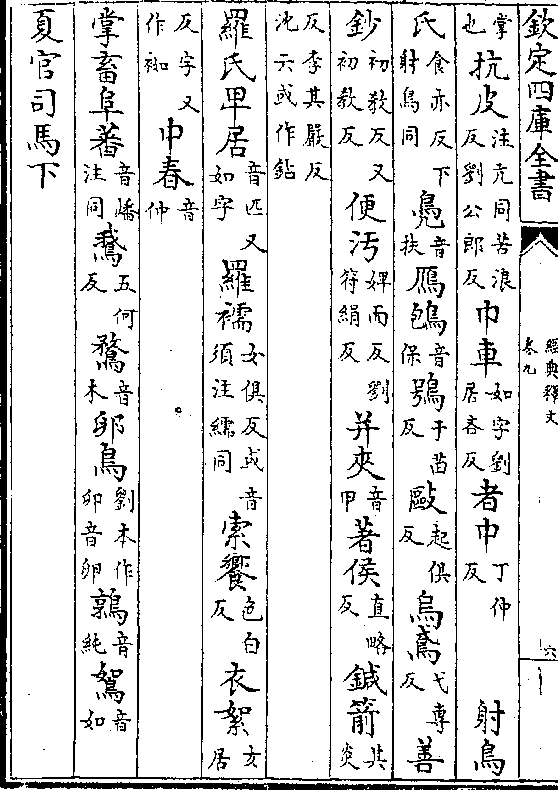 欽定四庫全書
經典釋文
卷九
六
掌也抗皮注亢同苦浪反劉公郎反巾車如字劉居吝反者中丁仲反射鳥
氏食亦反下射鳥同鳧音扶鴈鴇音保鴞于苗反毆起俱反烏鳶弋專反善
鈔初敎反又初敎反便汚婢面反劉符絹反并夾音甲著侯直略反鍼箭其炎
反李其嚴反沈云或作鉆
羅氏卑居音匹又如字羅襦女俱反或音須注繻同索饗色白反衣絮女居
反字又作袽中春音仲
掌畜阜蕃音嶓注同鵞五何反鶩音木卵鳥劉本作卵音卵鶉音純鴽音如
夏官司馬下